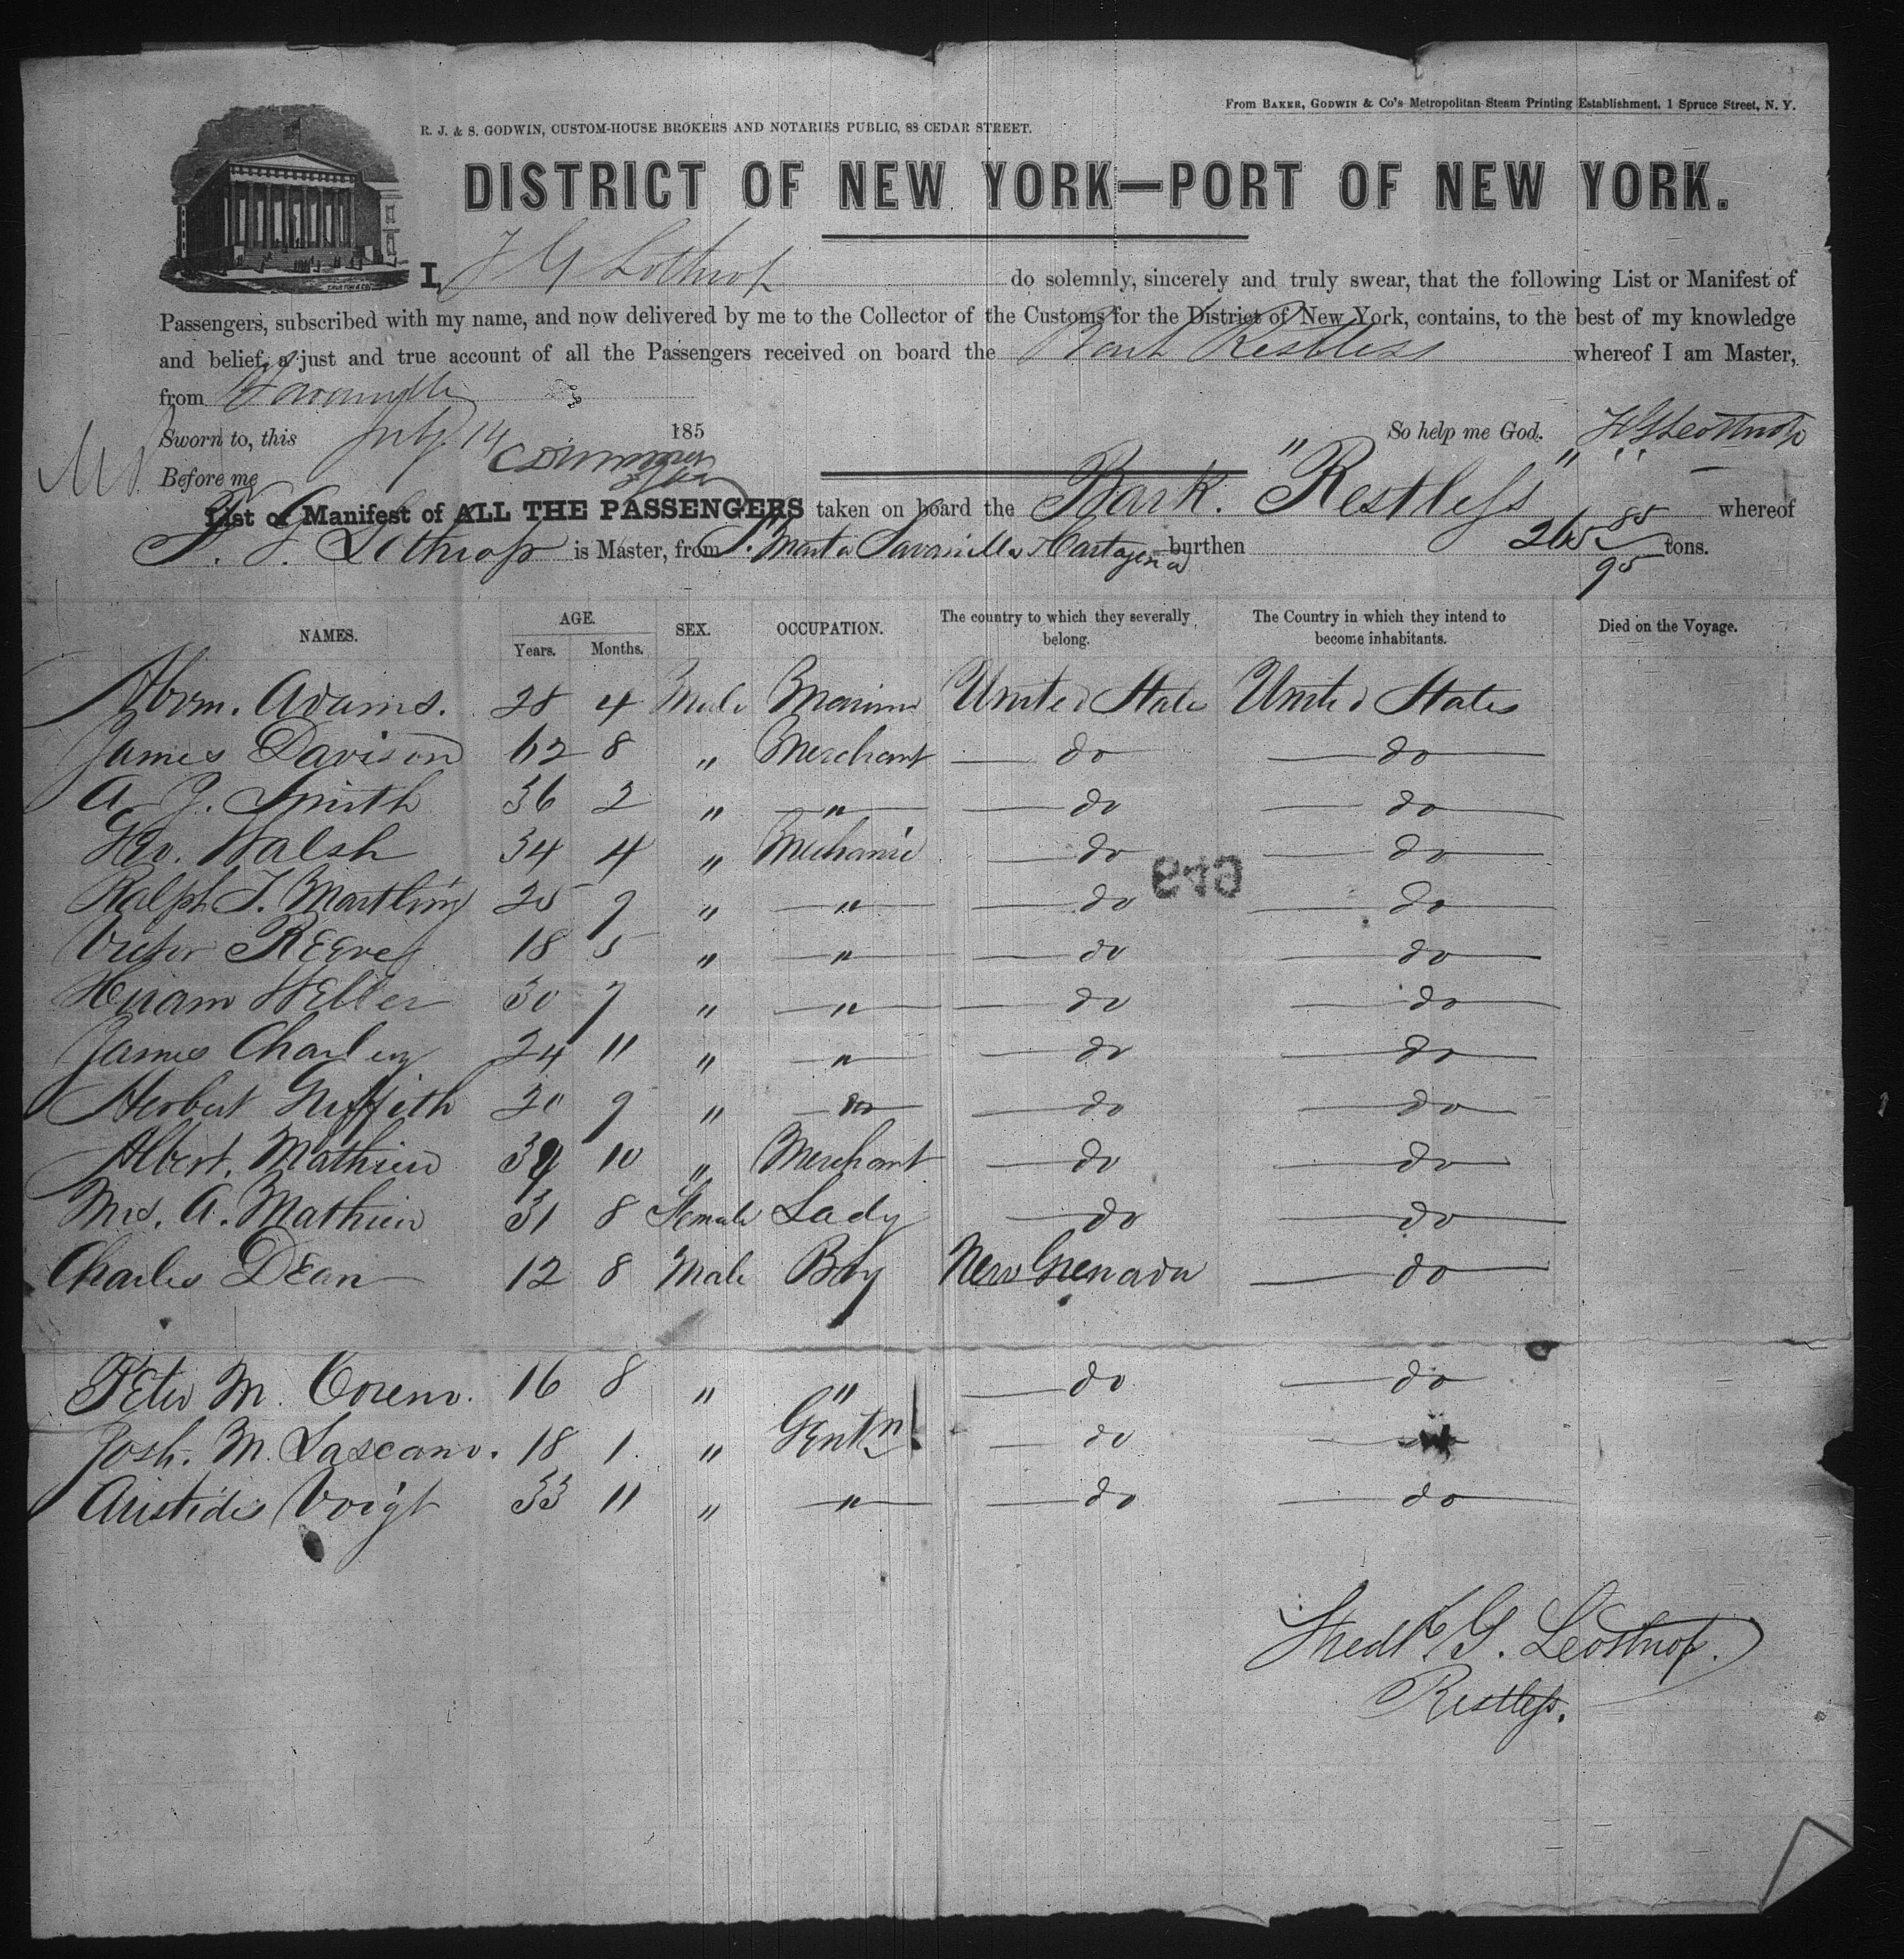 From BAKER, GODWIN & Co's Metropolitan Steam Printing Establishment, 1 Spruce Street, N. Y.
R. J. & S. GODWIN, CUSTOM-HOUSE BROKERS AND NOTARIES PUBLIC, 88 CEDAR STREET.
DISTRICT OF NEW YORK—PORT OF NEW YORK.
I, F G Lothrop do solemnly, sincerely and truly swear, that the following List or Manifest of
Passengers, subscribed with my name, and now delivered by me to the Collector of the Customs for the District of New York, contains, to the best of my knowledge
and belief, a just and true account of all the Passengers received on board the Bark Restless whereof I am Master,
from Savanilla
Sworn to, this July 14 185 So help me God. F G Lothrop
Before me
List or Manifest of ALL THE PASSENGERS taken on board the Bark. "Restless" whereof
F. G. Lothrop is Master, from S. Marta Savanilla & Cartagena burthen 265 85/95 tons.
NAMES. AGE. Years. Months. SEX. OCCUPATION. The country to which they severally belong. The Country in which they intend to become inhabitants. Died on the Voyage.
Abrm. Adams. 28 4 Male United States United States
James Davison 62 8 " Merchant do do
A. J. Smith 36 2 " " do do
Walsh 34 4 " Mechanic do do
Ralph T. Martling 25 9 " " do do
Victor Reeves 18 5 " " do do
Hiram Weller 30 7 " " do do
James Charley 24 11 " " do do
Herbert Griffith 20 9 " do do do
Albert. Mathieu 39 10 " Merchant do do
Mrs. A. Mathieu 31 8 Female Lady do do
Charles Dean 12 8 Male Boy New Grenada do
Peter M. Coreno. 16 8 " " do do
Josh. M. Lascano. 18 1 " Gentn do
Aristides Voigt 33 11 " " do do
Fredk G. Lothrop.
Restless.